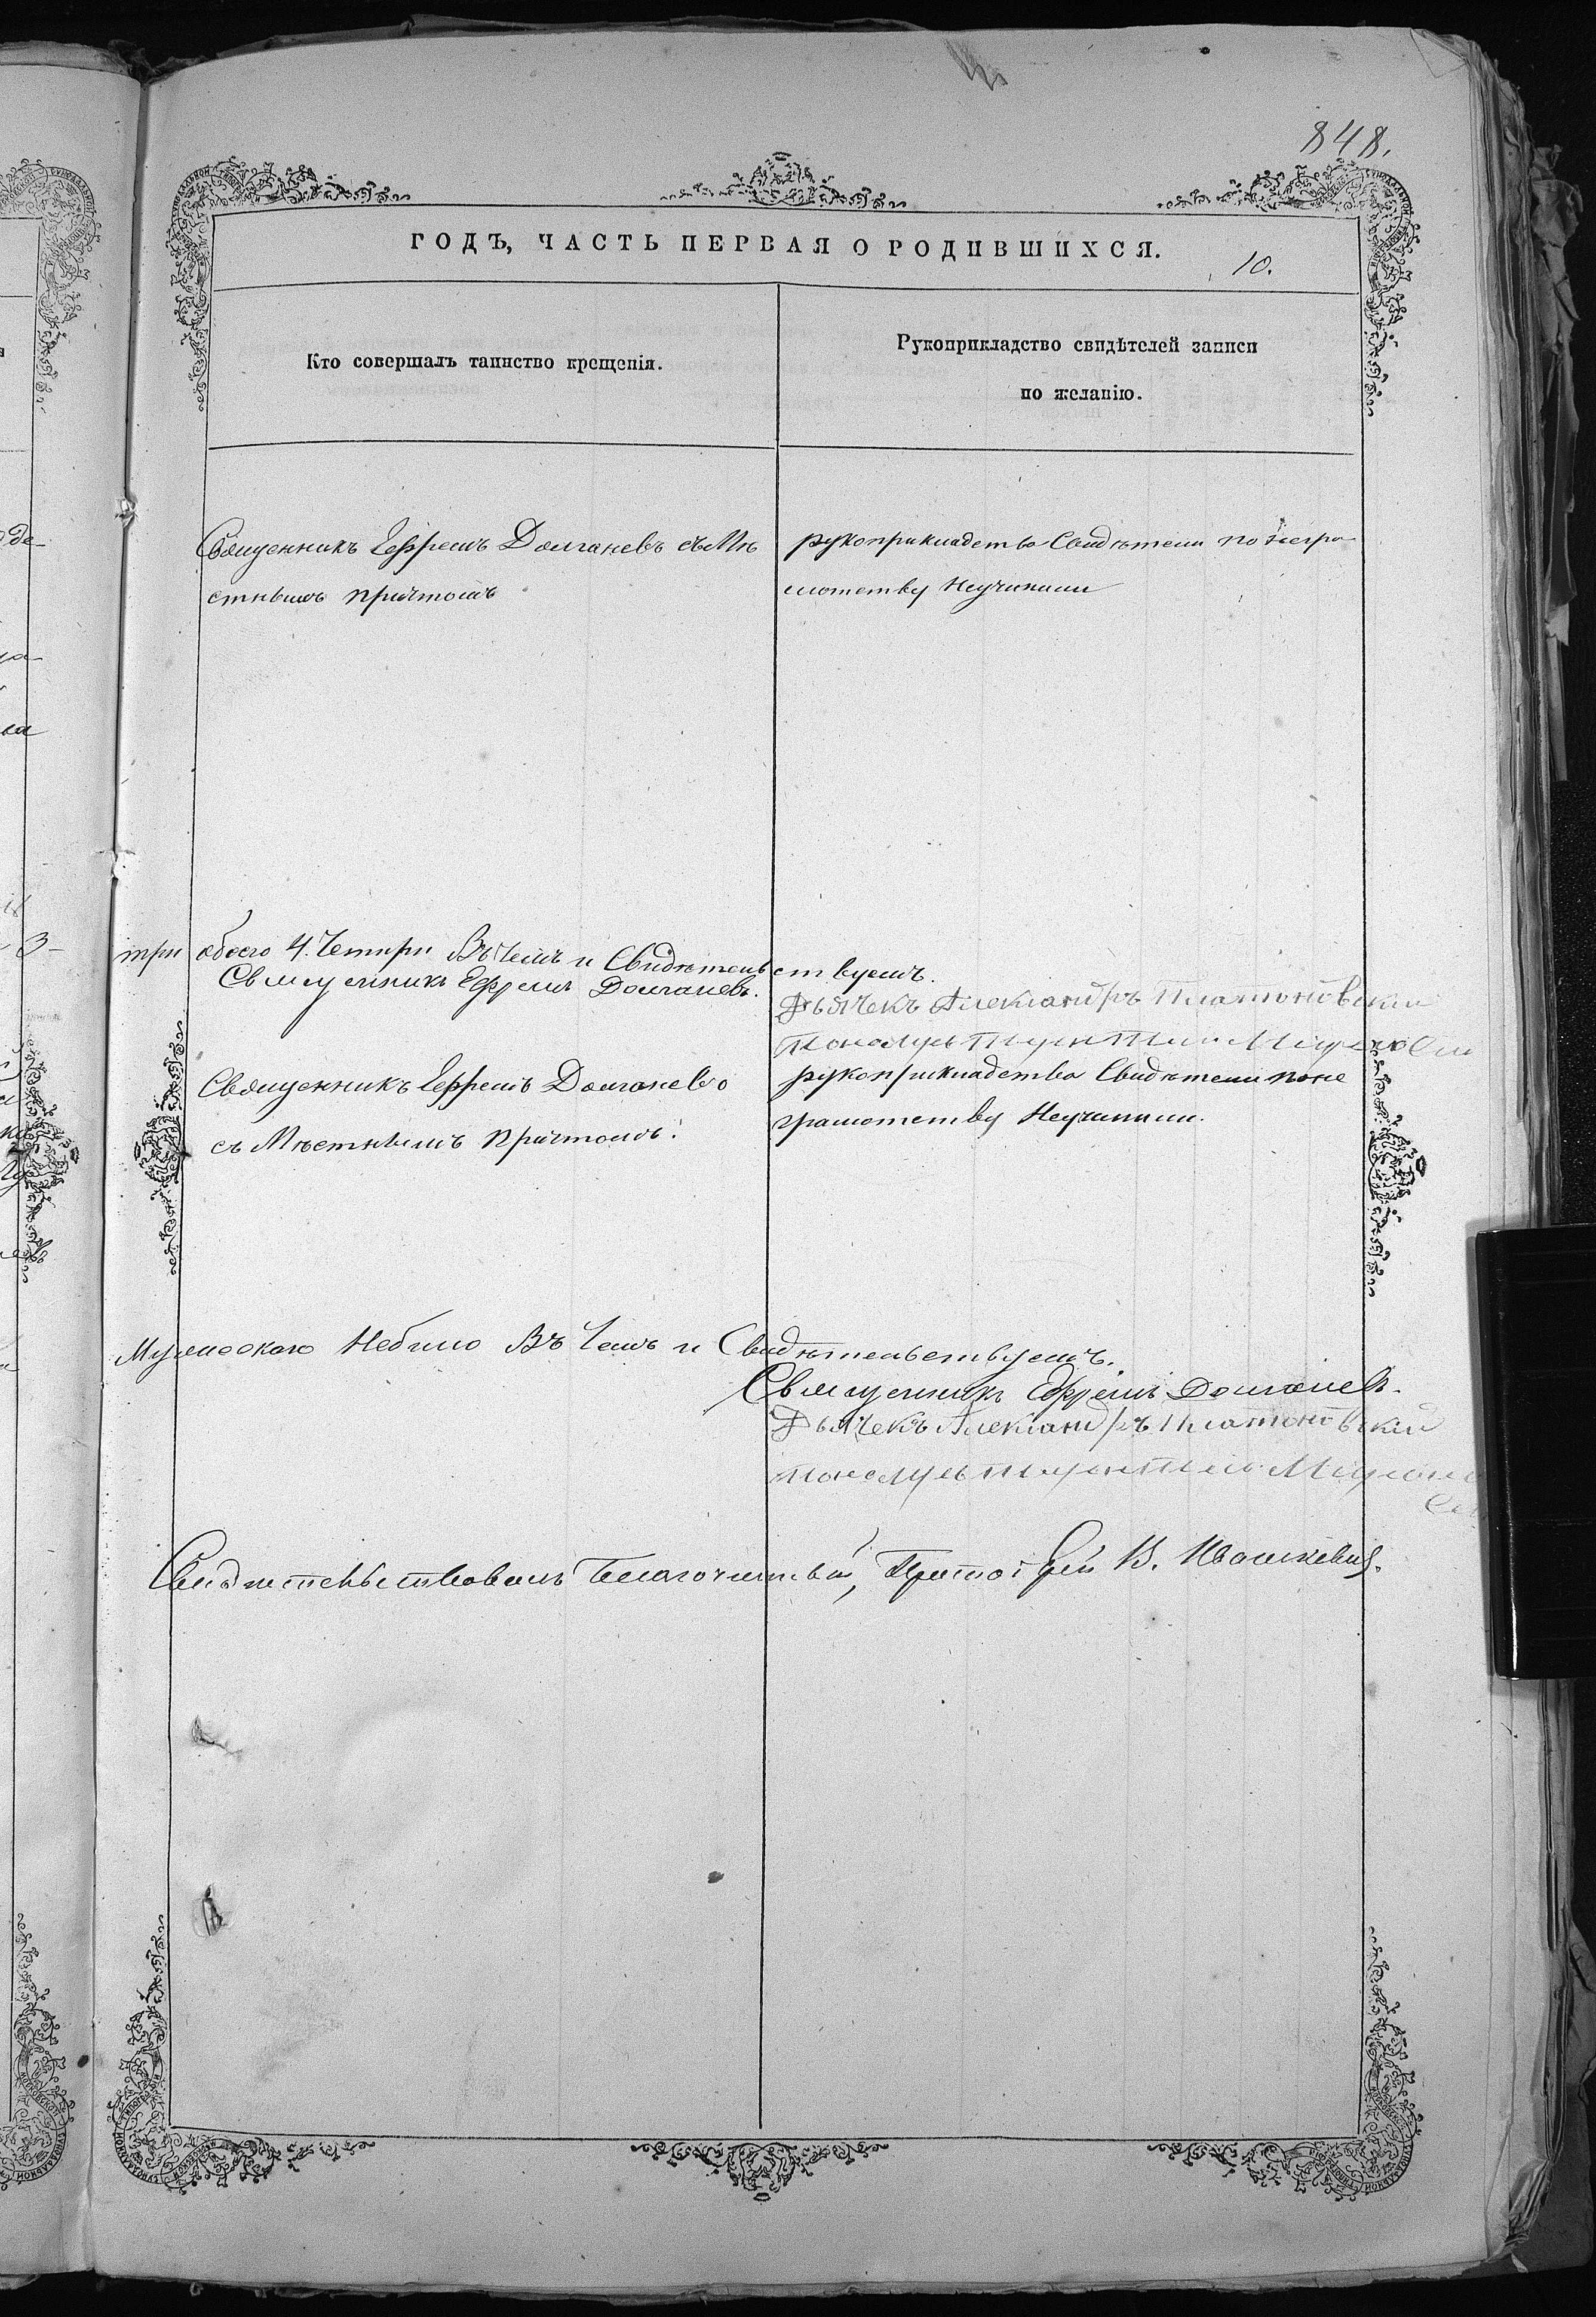 848.
ГОДЪ, ЧАСТЬ ПЕРВАЯ О РОДИВШИХСЯ.
10.
Кто совершалъ таинство крещенія.
Рукоприкладство свидѣтелей записи
по желанію.
Священникъ Ефремъ Долгановъ съ Мѣ
стнымъ причтомъ
рукоприкладства Свидѣтели по негра
мотству Неучинили
три обоего 4. Четыри Въ чемъ и Свидѣтельствуемъ.
Священникъ Ефремъ Долгановъ.
Дьячекъ Александръ Платоновскій
Пономарь
Священникъ Ефремъ Долгановъ
съ Мѣстнымъ причтомъ.
рукоприкладства Свидѣтели поне
грамотству Неучинили.
Мужеского Небыло Въ Чемъ и Свидѣтельствуемъ.
Священникъ Ефремъ Долгановъ.
Дьячекъ Александръ Платоновскій
Пономарь
Свидѣтельствовалъ Благочинный, Протоіерей И. Ивашкевичъ.